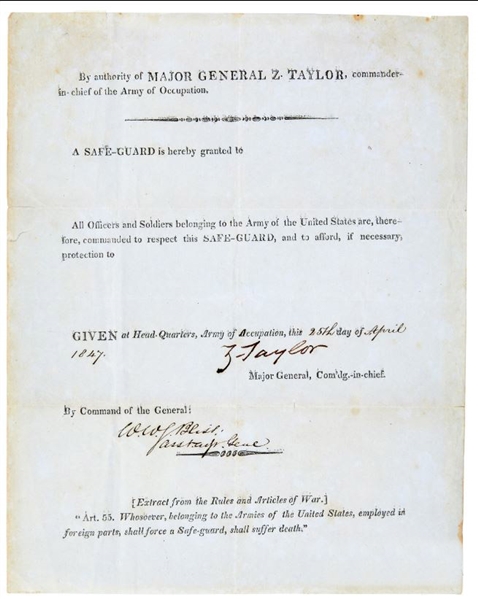 By authority of MAJOR GENERAL Z. TAYLOR, commander-
in-chief of the Army of Occupation.
A SAFE-GUARD is hereby granted to
All Officers and Soldiers belonging to the Army of the United States are, there-
fore, commanded to respect this SAFE-GUARD, and to afford, if necessary,
protection to
GIVEN at Head-Quarters, Army of Occupation, this 25th day of April
1847.
Z. Taylor
Major General, Com'dg.-in-chief.
By Command of the General:
W.W.S. Bliss.
[Extract from the Rules and Articles of War.]
"Art. 55. Whosoever, belonging to the Armies of the United States, employed in
foreign parts, shall force a Safe-guard, shall suffer death."